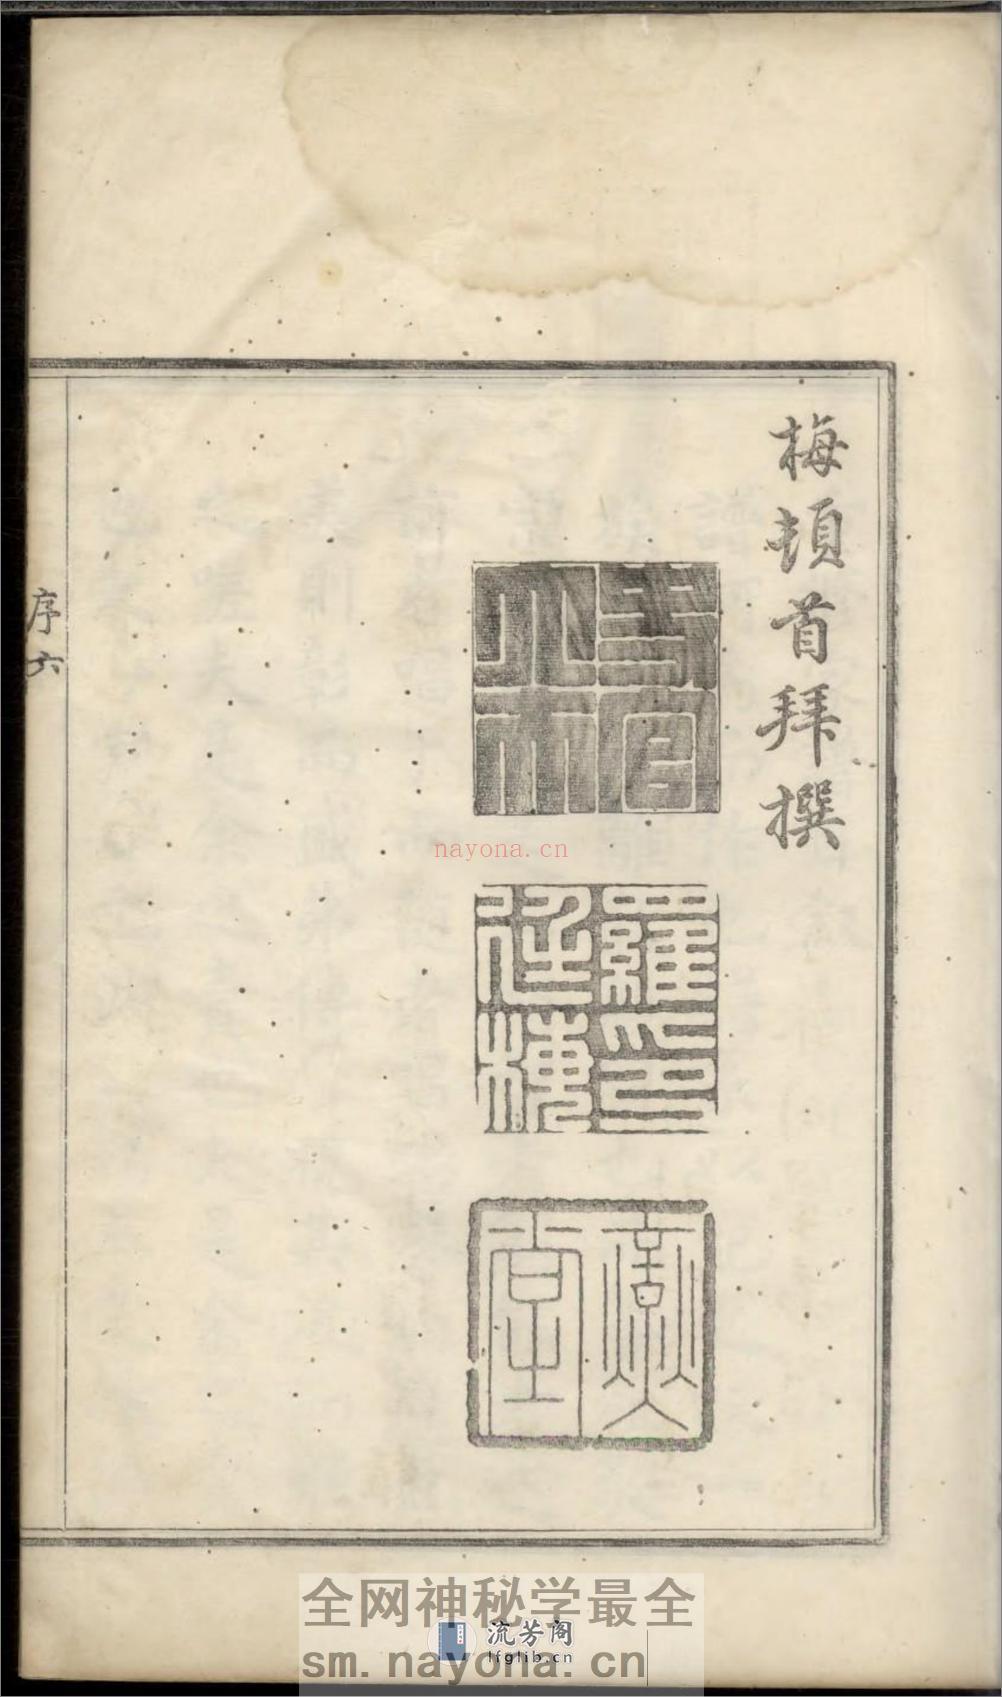 梅頓首拜撰
羅印
梅
堂
序六
nayona.cn
全网神秘学最全
流芳阁
lfglib.cn
sm.nayona.cn